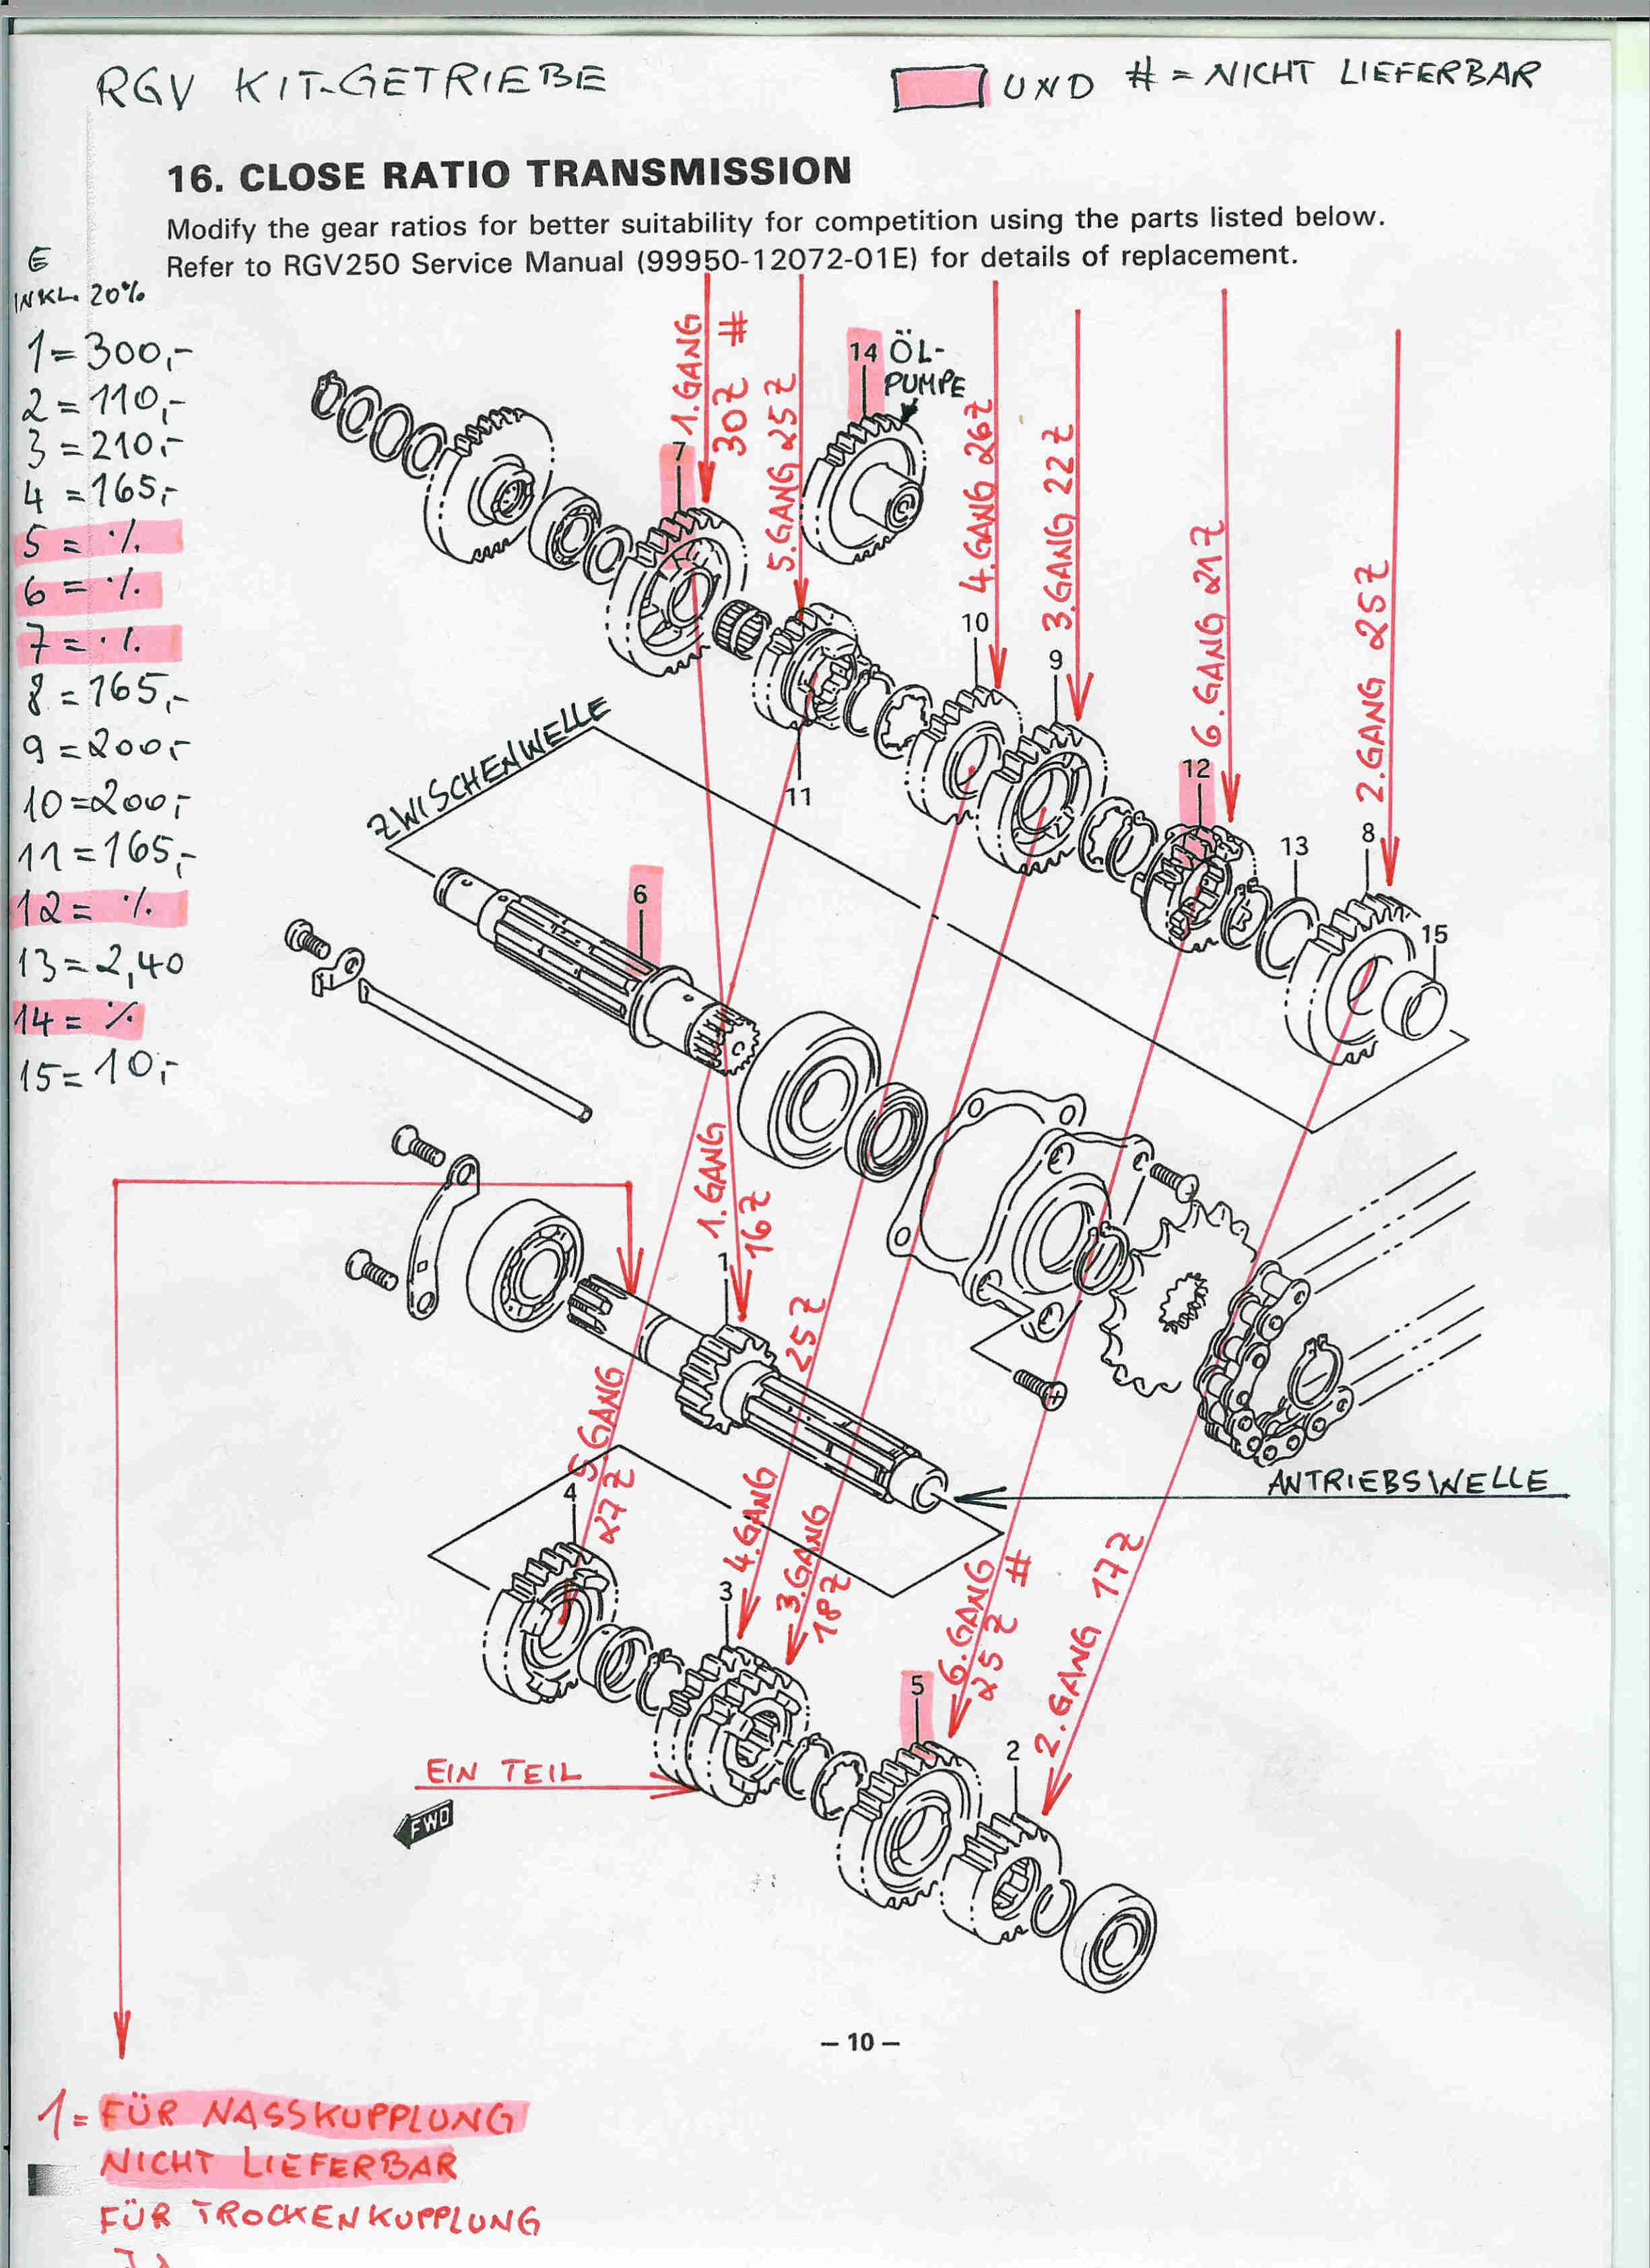 RGV KIT-GETRIEBE
UND # = NICHT LIEFERBAR
16. CLOSE RATIO TRANSMISSION
Modify the gear ratios for better suitability for competition using the parts listed below.
Refer to RGV250 Service Manual (99950-12072-01E) for details of replacement.
€
INKL. 20%
1=300,-
2=110,-
3=210,-
4=165,-
5= ·/.
6= ·/.
7= ·/.
8=165,-
9=200,-
10=200,-
11=165,-
12= ·/.
13=2,40
14= ·/.
15=10,-
1.GANG
30Z #
5.GANG 25Z
14 ÖL-
PUMPE
4.GANG 26Z
3.GANG 22Z
6.GANG 21Z
2.GANG 25Z
7
10
9
11
12
13
8
15
ZWISCHENWELLE
6
1.GANG
16Z
1
25Z
5.GANG
27Z
4
ANTRIEBSWELLE
4.GANG
3
3.GANG
18Z
6.GANG
25Z #
5
2.GANG 17Z
2
EIN TEIL
FWD
– 10 –
1= FÜR NASSKUPPLUNG
NICHT LIEFERBAR
FÜR TROCKENKUPPLUNG